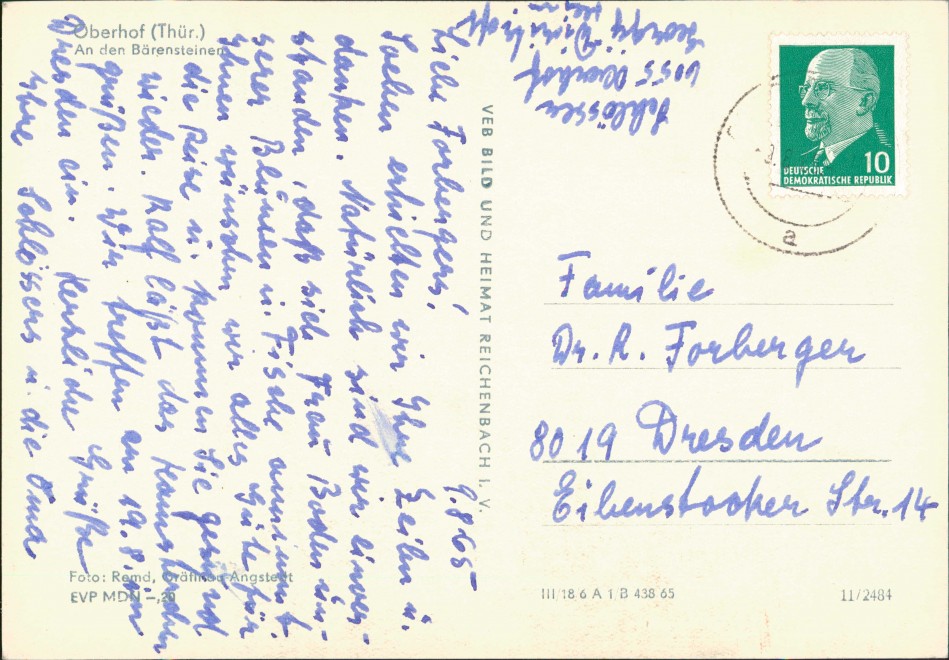 Oberhof (Thür.)
An den Bärensteinen
9.8.65
Liebe Forbergers,
Soeben erhielten wir Ihre Zeilen u.
danken. Natürlich sind wir einver-
standen, daß sich Frau Boden un-
serer Blumen u. Fische annimmt.
Ihnen wünschen wir alles Gute für
die Reise u. kommen Sie gesund
wieder. Ralf läßt das
grüßen. Wir treffen am 19.8. in
Dresden ein. Herzliche Grüße
Ihre Schlössers u. die Oma
Foto: Remd, Gräfinau-Angstedt
EVP MDN -,20
VEB BILD UND HEIMAT REICHENBACH I. V.
Schlösser
6055 Oberhof
Georgij Dimitroff
Heim
DEUTSCHE
DEMOKRATISCHE REPUBLIK
10
a
Familie
Dr. R. Forberger
8019 Dresden
Eibenstocker Str. 14
III 18 6 A 1 B 438 65
11/2484